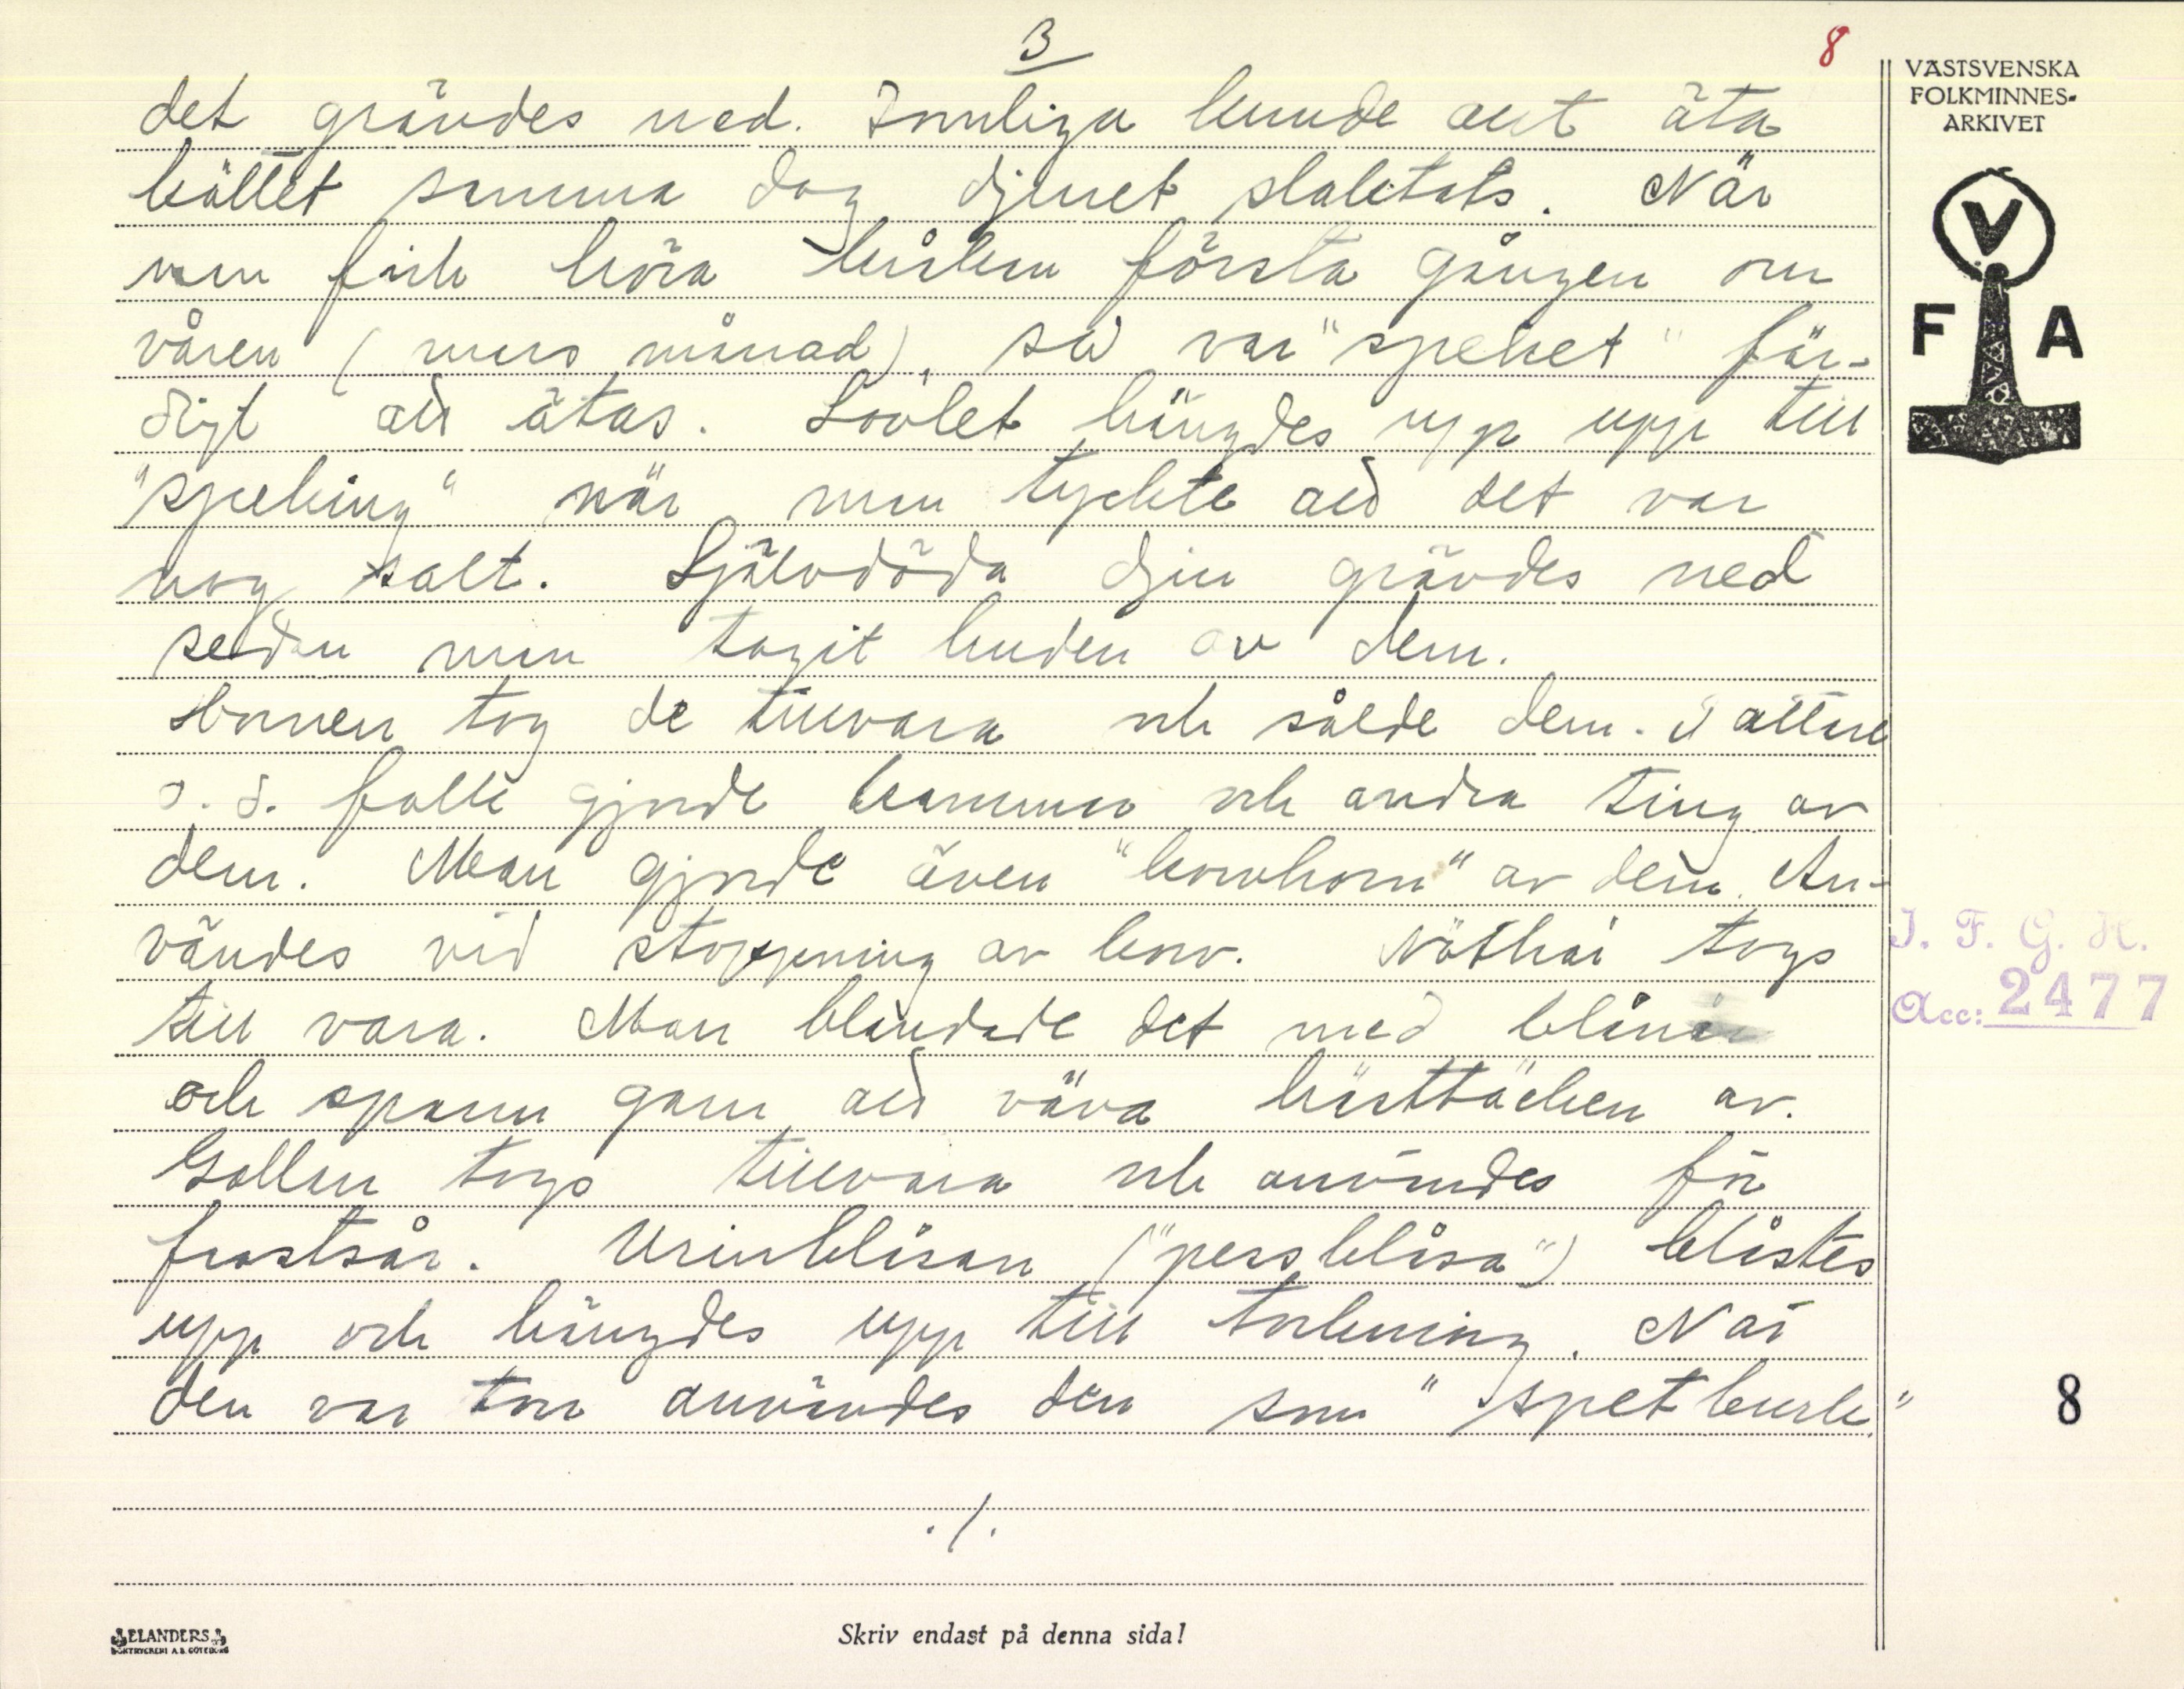 3
8
VÄSTSVENSKA
FOLKMINNES-
ARKIVET
V
F A
det grävdes ned. Somliga kunde ent äta
köttet samma dag djuret slaktats. När
man fick höra kråkan första gången om
våren (mars månad), så var "speket" fär-
digt att ätas. Sovlet hängdes upp upp till
"speking" när man tyckte att det var
nog salt. Självdöda djur grävdes ned
sedan man tagit huden av dem.
Hornen tog de tillvara och sålde dem. Tattare
o. d. folk gjorde kammar och andra ting av
dem. Man gjorde även "korvhorn" av dem. An-
vändes vid stoppning av korv. Nöthår togs
till vara. Man blandade det med blånor
och spann garn att väva hästtäcken av.
Gallan togs tillvara och användes för
frostsår. Urinblåsan ("pessblåsa") blåstes
upp och hängdes upp till torkning. När
den var torr användes den som "spetkurk."
./.
I. F. G. H.
Acc: 2477
8
ELANDERS
BOKTRYCKERI A.B. GÖTEBORG
Skriv endast på denna sida!